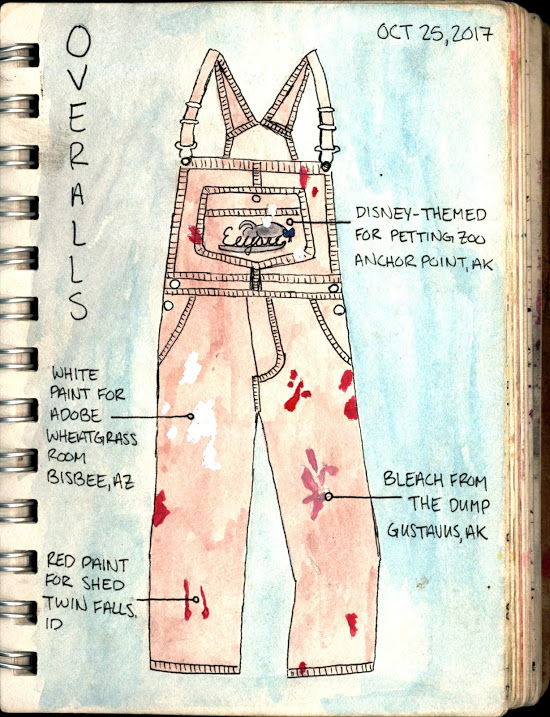 OVERALLS
OCT 25, 2017
DISNEY-THEMED
FOR PETTING ZOO
ANCHOR POINT, AK
WHITE
PAINT FOR
ADOBE
WHEATGRASS
ROOM
BISBEE, AZ
BLEACH FROM
THE DUMP
GUSTAVUS, AK
RED PAINT
FOR SHED
TWIN FALLS,
ID